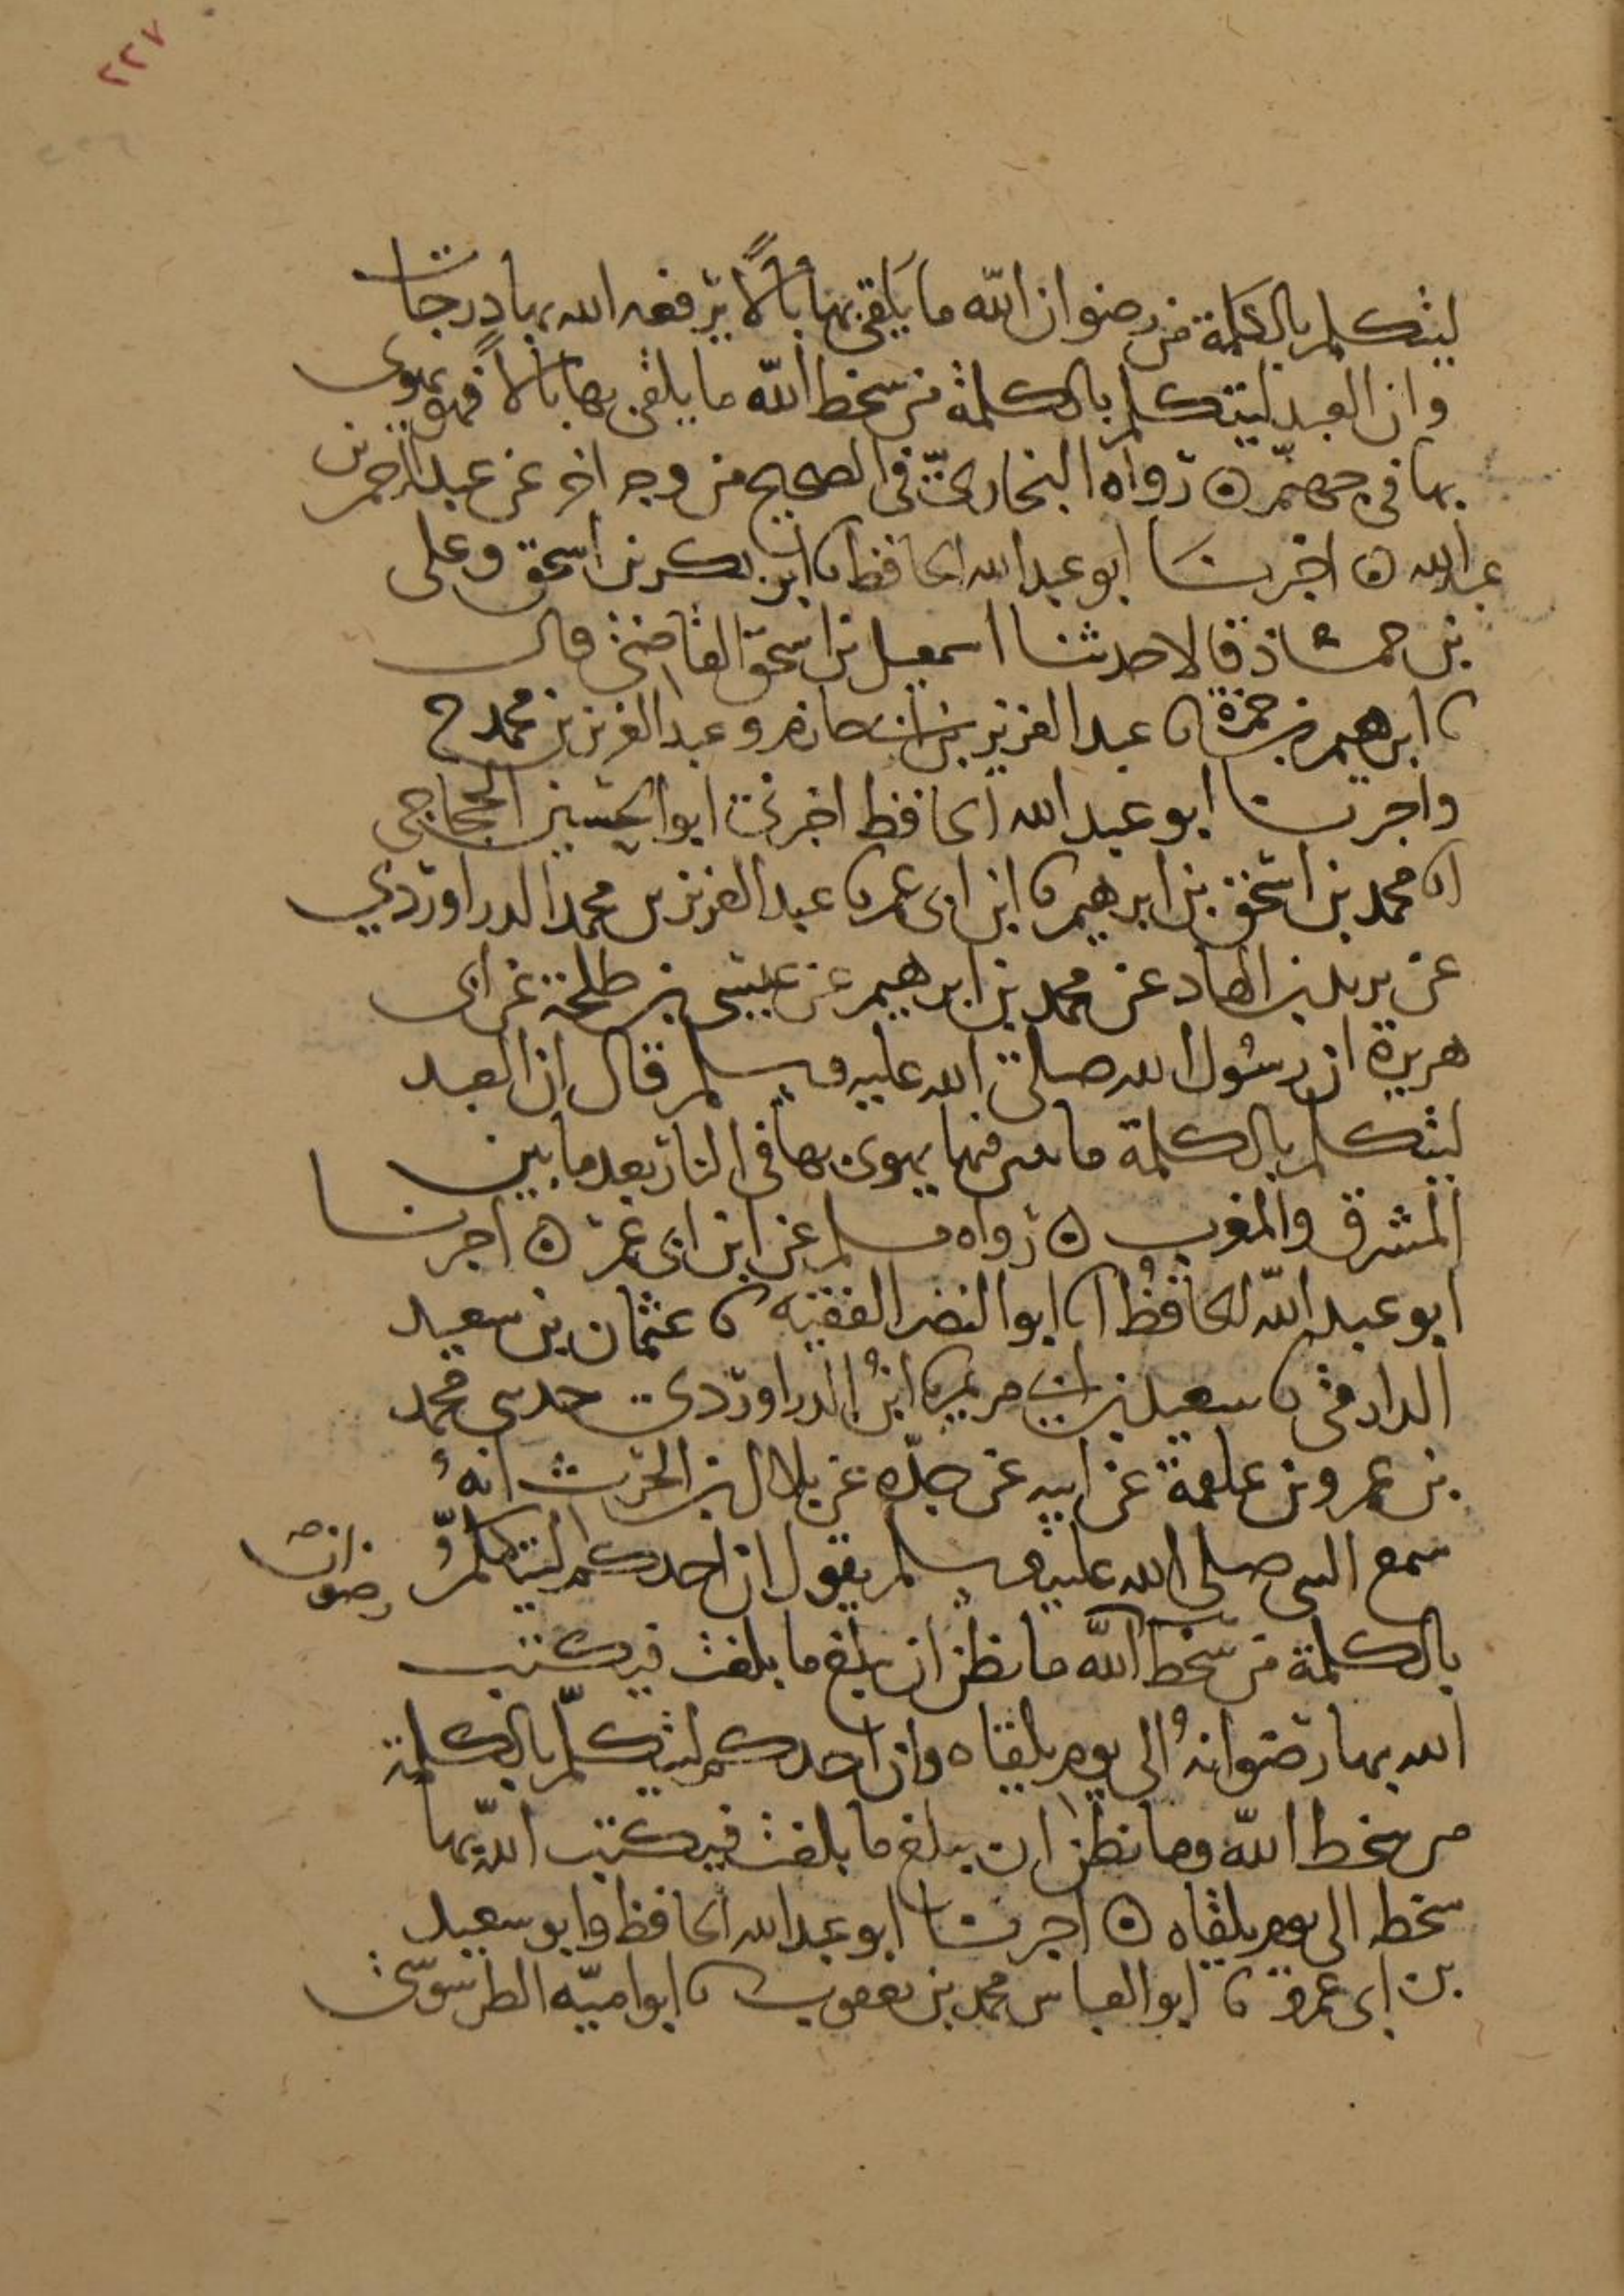 ٢٢٧
ليتكلم بالكلمة من رضوان الله ما يلقي بها بالًا يرفعه الله بها درجات
وان العبد ليتكلم بالكلمة من سخط الله ما يلقى بها بالًا فهو يهوى
بها في جهنم ۞ رواه البخاري في الصحيح من وجه اخر عن عبد الرحمن بن
عبد الله ۞ اخبرنا ابو عبد الله الحافظ انا ابو بكر بن اسحق وعلى
بن حمشاذ قالا حدثنا اسمعيل بن اسحق القاضي قال
نا ابرهيم بن حمزة نا عبد العزيز بن ابي حازم وعبد العزيز بن محمد ح
واخبرنا ابو عبد الله الحافظ اخبرني ابو الحسين الحجاجي
انا محمد بن اسحق بن ابرهيم نا ابن ابى عمر نا عبد العزيز بن محمد الدراوردي
عن يزيد بن الهاد عن محمد بن ابرهيم عن عيسى بن طلحة عن ابى
هريرة ان رسول الله صلى الله عليه وسلم قال ان العبد
ليتكلم بالكلمة ما يتبين فيها يهوى بها في النار بعد ما بين
المشرق والمغرب ۞ رواه مسلم عن ابن ابى عمر ۞ اخبرنا
ابو عبد الله الحافظ انا ابو النضر الفقيه نا عثمان بن سعيد
الدارمي نا سعيد بن ابي مريم نا ابن الدراوردي حدثني محمد
بن عمرو بن علقمة عن ابيه عن جده عن بلال بن الحرث انه
سمع النبي صلى الله عليه وسلم يقول ان احدكم ليتكلم
رضوان
بالكلمة من سخط الله ما يظن ان تبلغ ما بلغت فيكتب
الله بها رضوانه الى يوم يلقاه وان احدكم ليتكلم بالكلمة
من سخط الله وما يظن ان يبلغ ما بلغت فيكتب الله بها
سخطه الى يوم يلقاه ۞ اخبرنا ابو عبد الله الحافظ وابو سعيد
بن ابى عمرو نا ابو العباس محمد بن يعقوب نا ابو امية الطرسوسي